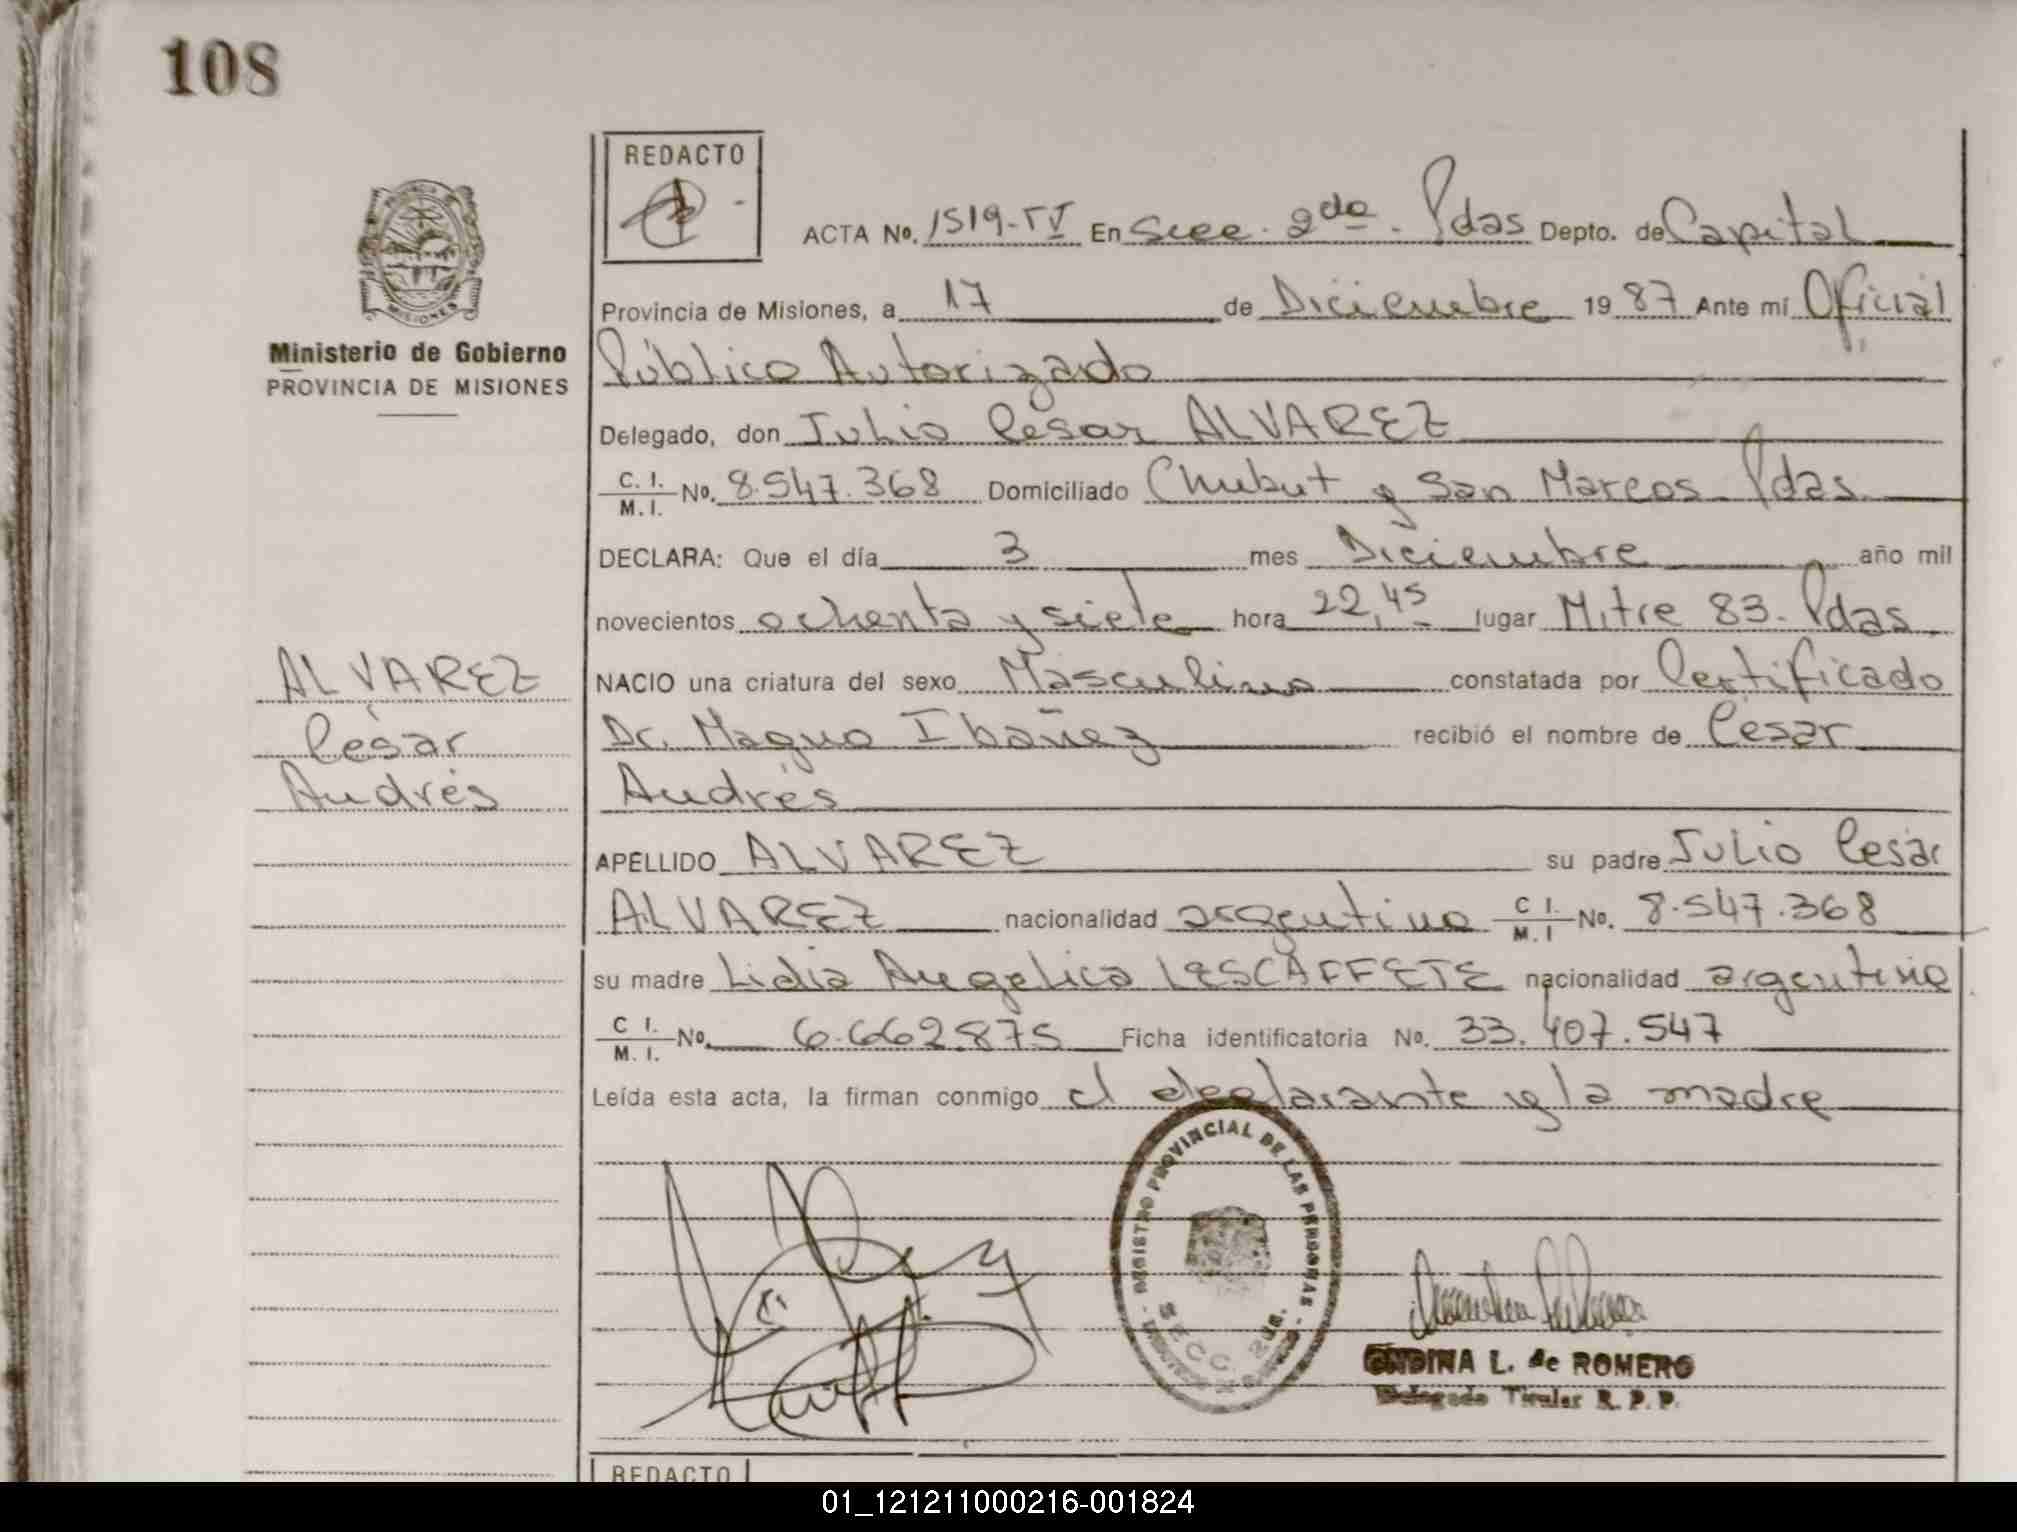 108
REDACTO
ACTA No. 1519-IV En Secc. 2da. Pdas Depto. de Capital
Provincia de Misiones, a 17 de Diciembre 1987 Ante mí Oficial
Público Autorizado
Ministerio de Gobierno
PROVINCIA DE MISIONES
MISIONES
Delegado, don Julio Cesar ALVAREZ
C. I. M. I. No. 8.547.368 Domiciliado Chubut y San Marcos Pdas
DECLARA: Que el día 3 mes Diciembre año mil
novecientos ochenta y siete hora 22,45 lugar Mitre 83. Pdas
ALVAREZ
César
Andrés
NACIO una criatura del sexo Masculino constatada por Certificado
Dr. Magno Ibañez recibió el nombre de César
Andrés
APELLIDO ALVAREZ su padre Julio Cesar
ALVAREZ nacionalidad argentino C I. M. I No. 8.547.368
su madre Lidia Angelica LESCAFFETE nacionalidad argentina
C I. M. I. No. 6.662.875 Ficha identificatoria No. 33.407.547
Leída esta acta, la firman conmigo el declarante y la madre
REGISTRO PROVINCIAL DE LAS PERSONAS
SECC. 2da.
ONDINA L. de ROMERO
Delegado Titular R. P. P.
REDACTO
01_121211000216-001824